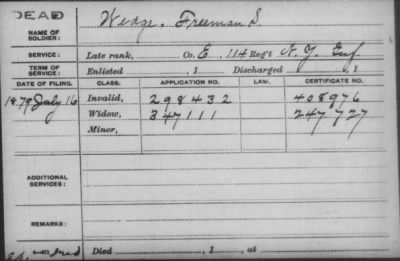 DEAD
NAME OF SOLDIER: Wedge, Freeman S.
SERVICE: Late rank, Co. E, 114 Reg't N.Y. Inf
TERM OF SERVICE: Enlisted , 1 Discharged , 1
DATE OF FILING. CLASS. APPLICATION NO. LAW. CERTIFICATE NO.
1879 July 16 Invalid, 298432 408976
Widow, 347111 247727
Minor,
ADDITIONAL SERVICES:
REMARKS:
Died , 1 , at